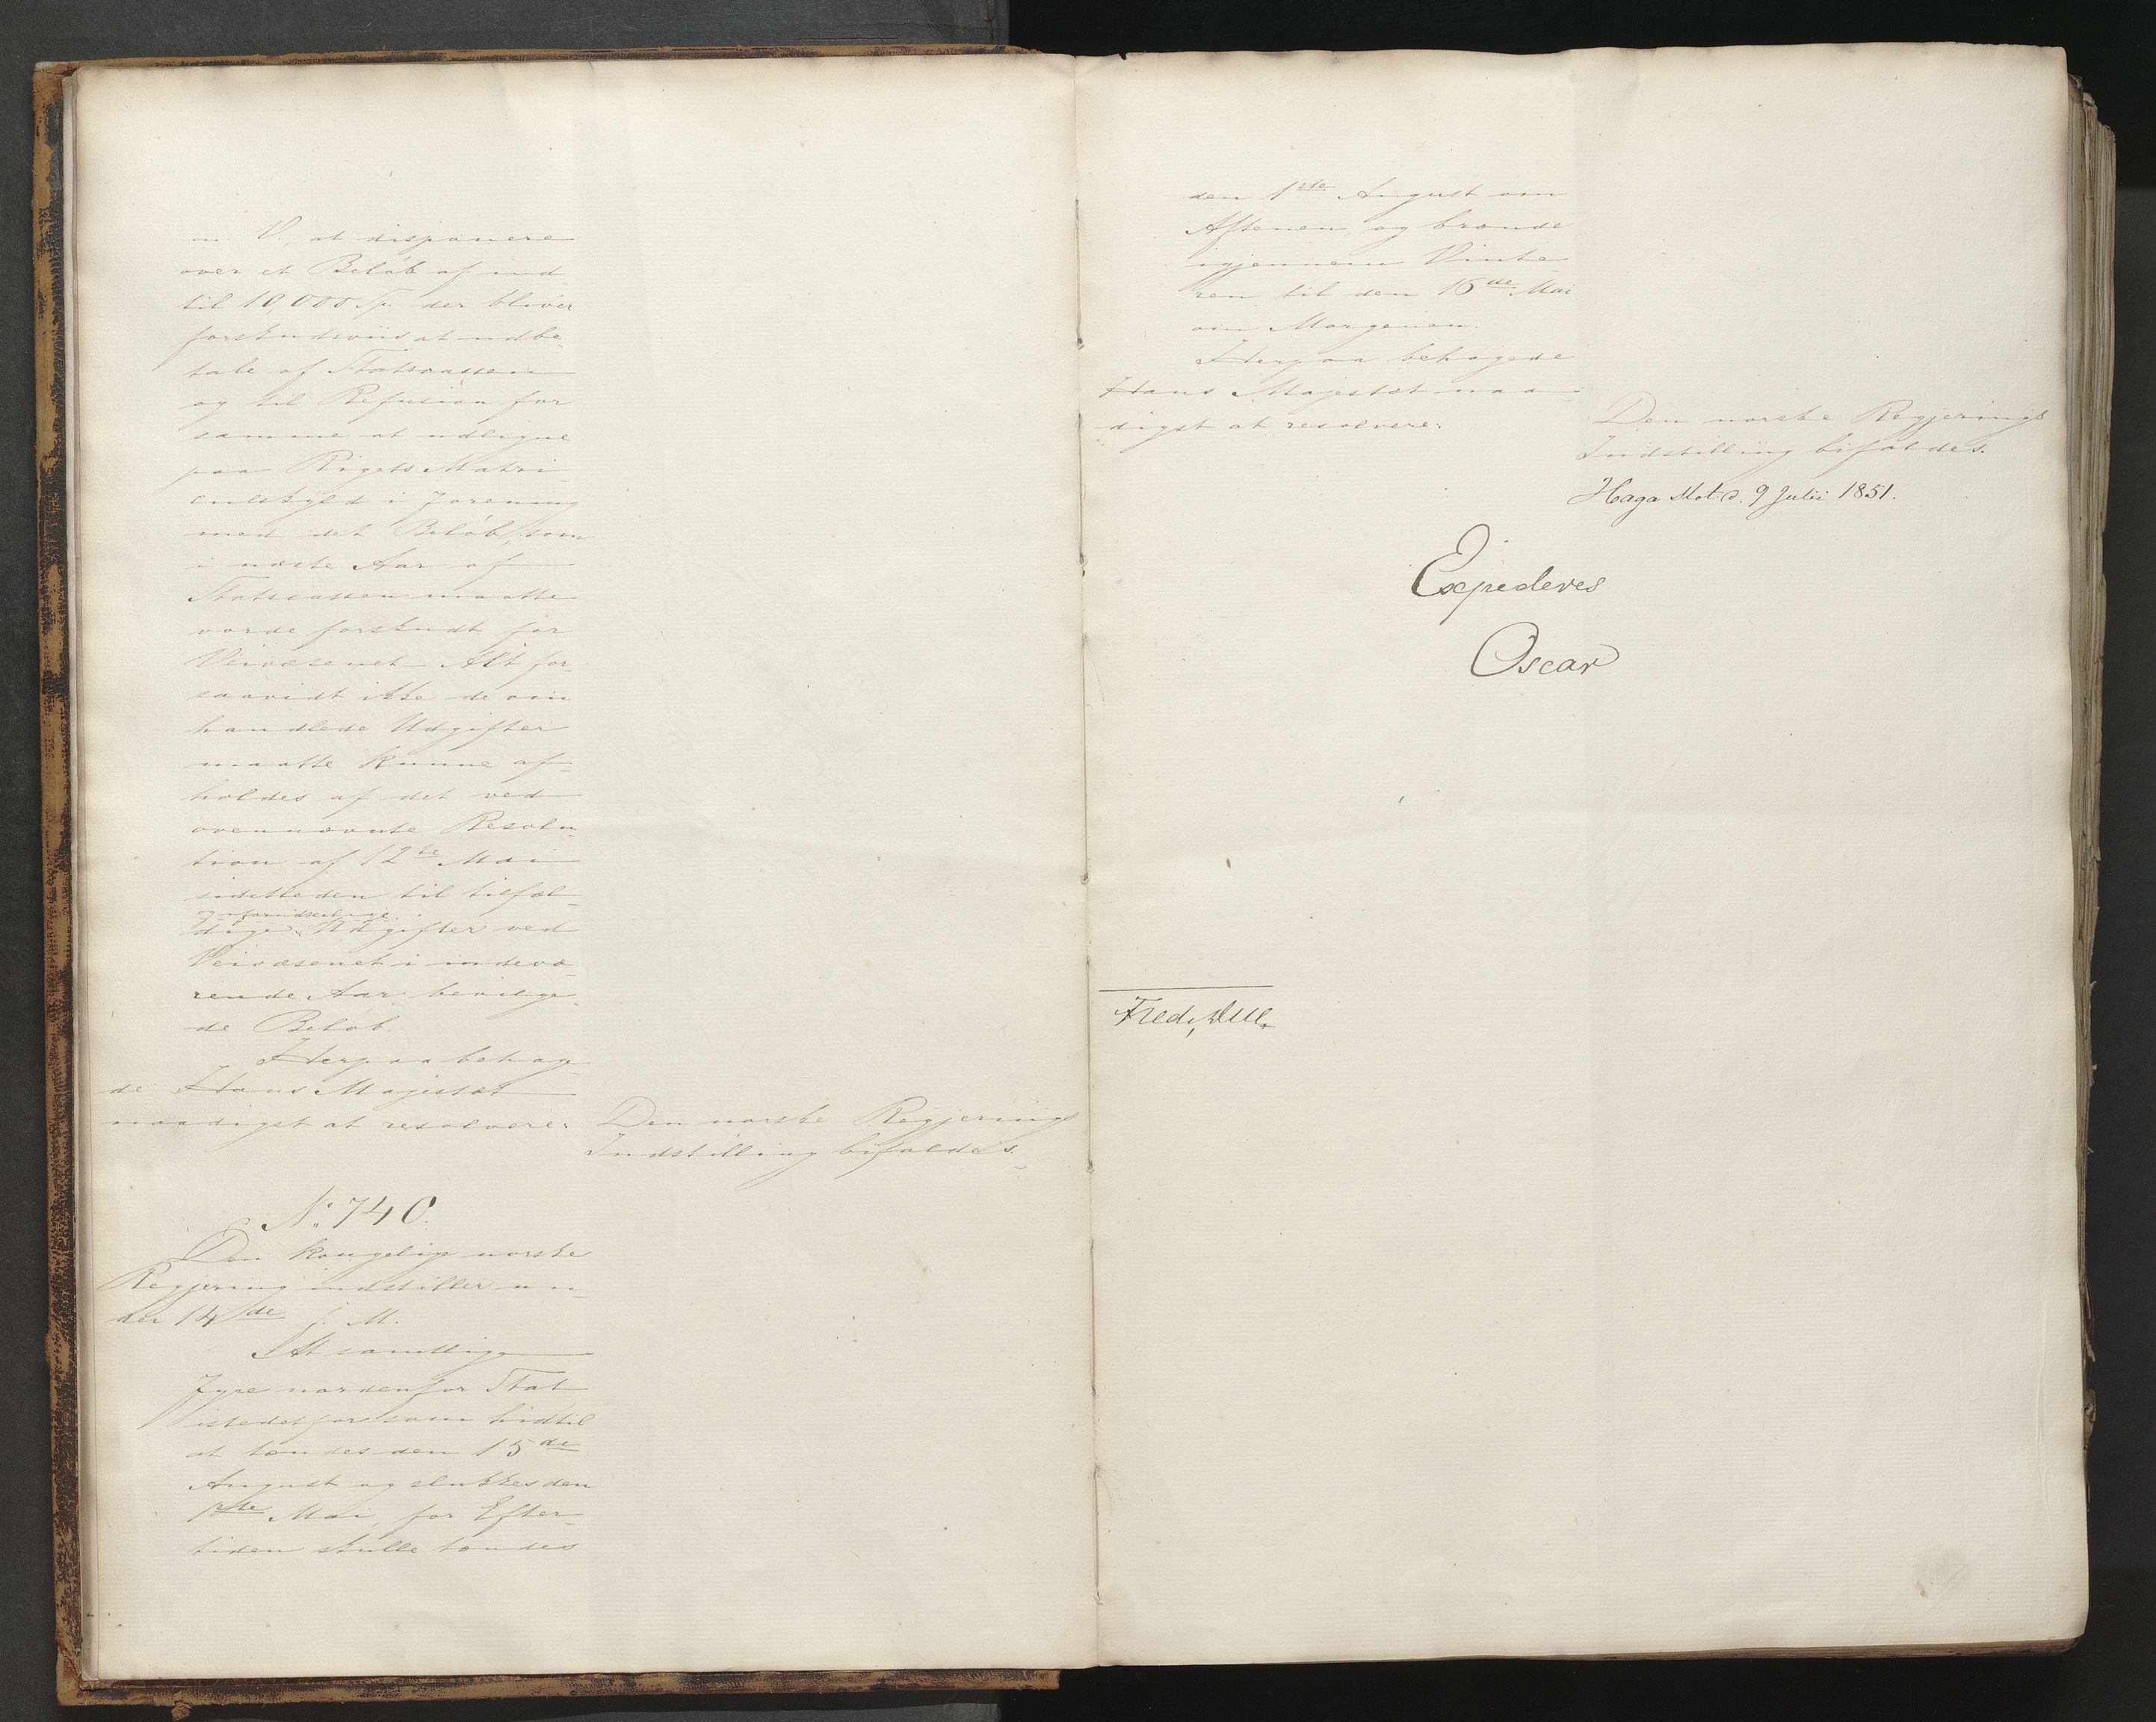 m. V., at disponere
over et Beløb af ind
til 10,000 Sp. der bliver
forskudsviis at udbe-
tale af Statscassen
og til Refusion for
samme at udligne
paa Rigets Matri-
culskyld i Forening
med det Beløb, som
i næste Aar af
Statscassen maatte
vorde forskudt for
Veivæsenet - Alt for-
saavidt ikke de om
handlede Udgifter
maatte kunne af-
holdes af det ved
ovennævnte Resolu-
tion af 12te Mai
sidstleden til tilfæl-
og uforudseelige
dige Udgifter ved
Veivæsenet i indevæ-
rende Aar bevilge-
de Beløb.
Herpaa behag-
de Hans Majestæt
naadigst at resolvere:
Den norske Regjerings
Indstilling bifaldes.
No. 740.
Den kongelige norske
Regjering indstiller un-
der 14de f. M.
At samtlige
Fyre nordenfor Stat
istedetfor som hidtil
at tændes den 15de
August og slukkes den
1ste Mai, for Efter-
tiden skulle tændes
den 1ste August om
Aftenen, og brænde
igjennem Vinte-
ren til den 16de Mai
om Morgenen.
Herpaa behagede
Hans Majestæt naa-
digst at resolvere:
Den norske Regjerings
Indstilling bifaldes.
Haga Slot d. 9 Julii 1851.
Expederes
Oscar
Fred. Due